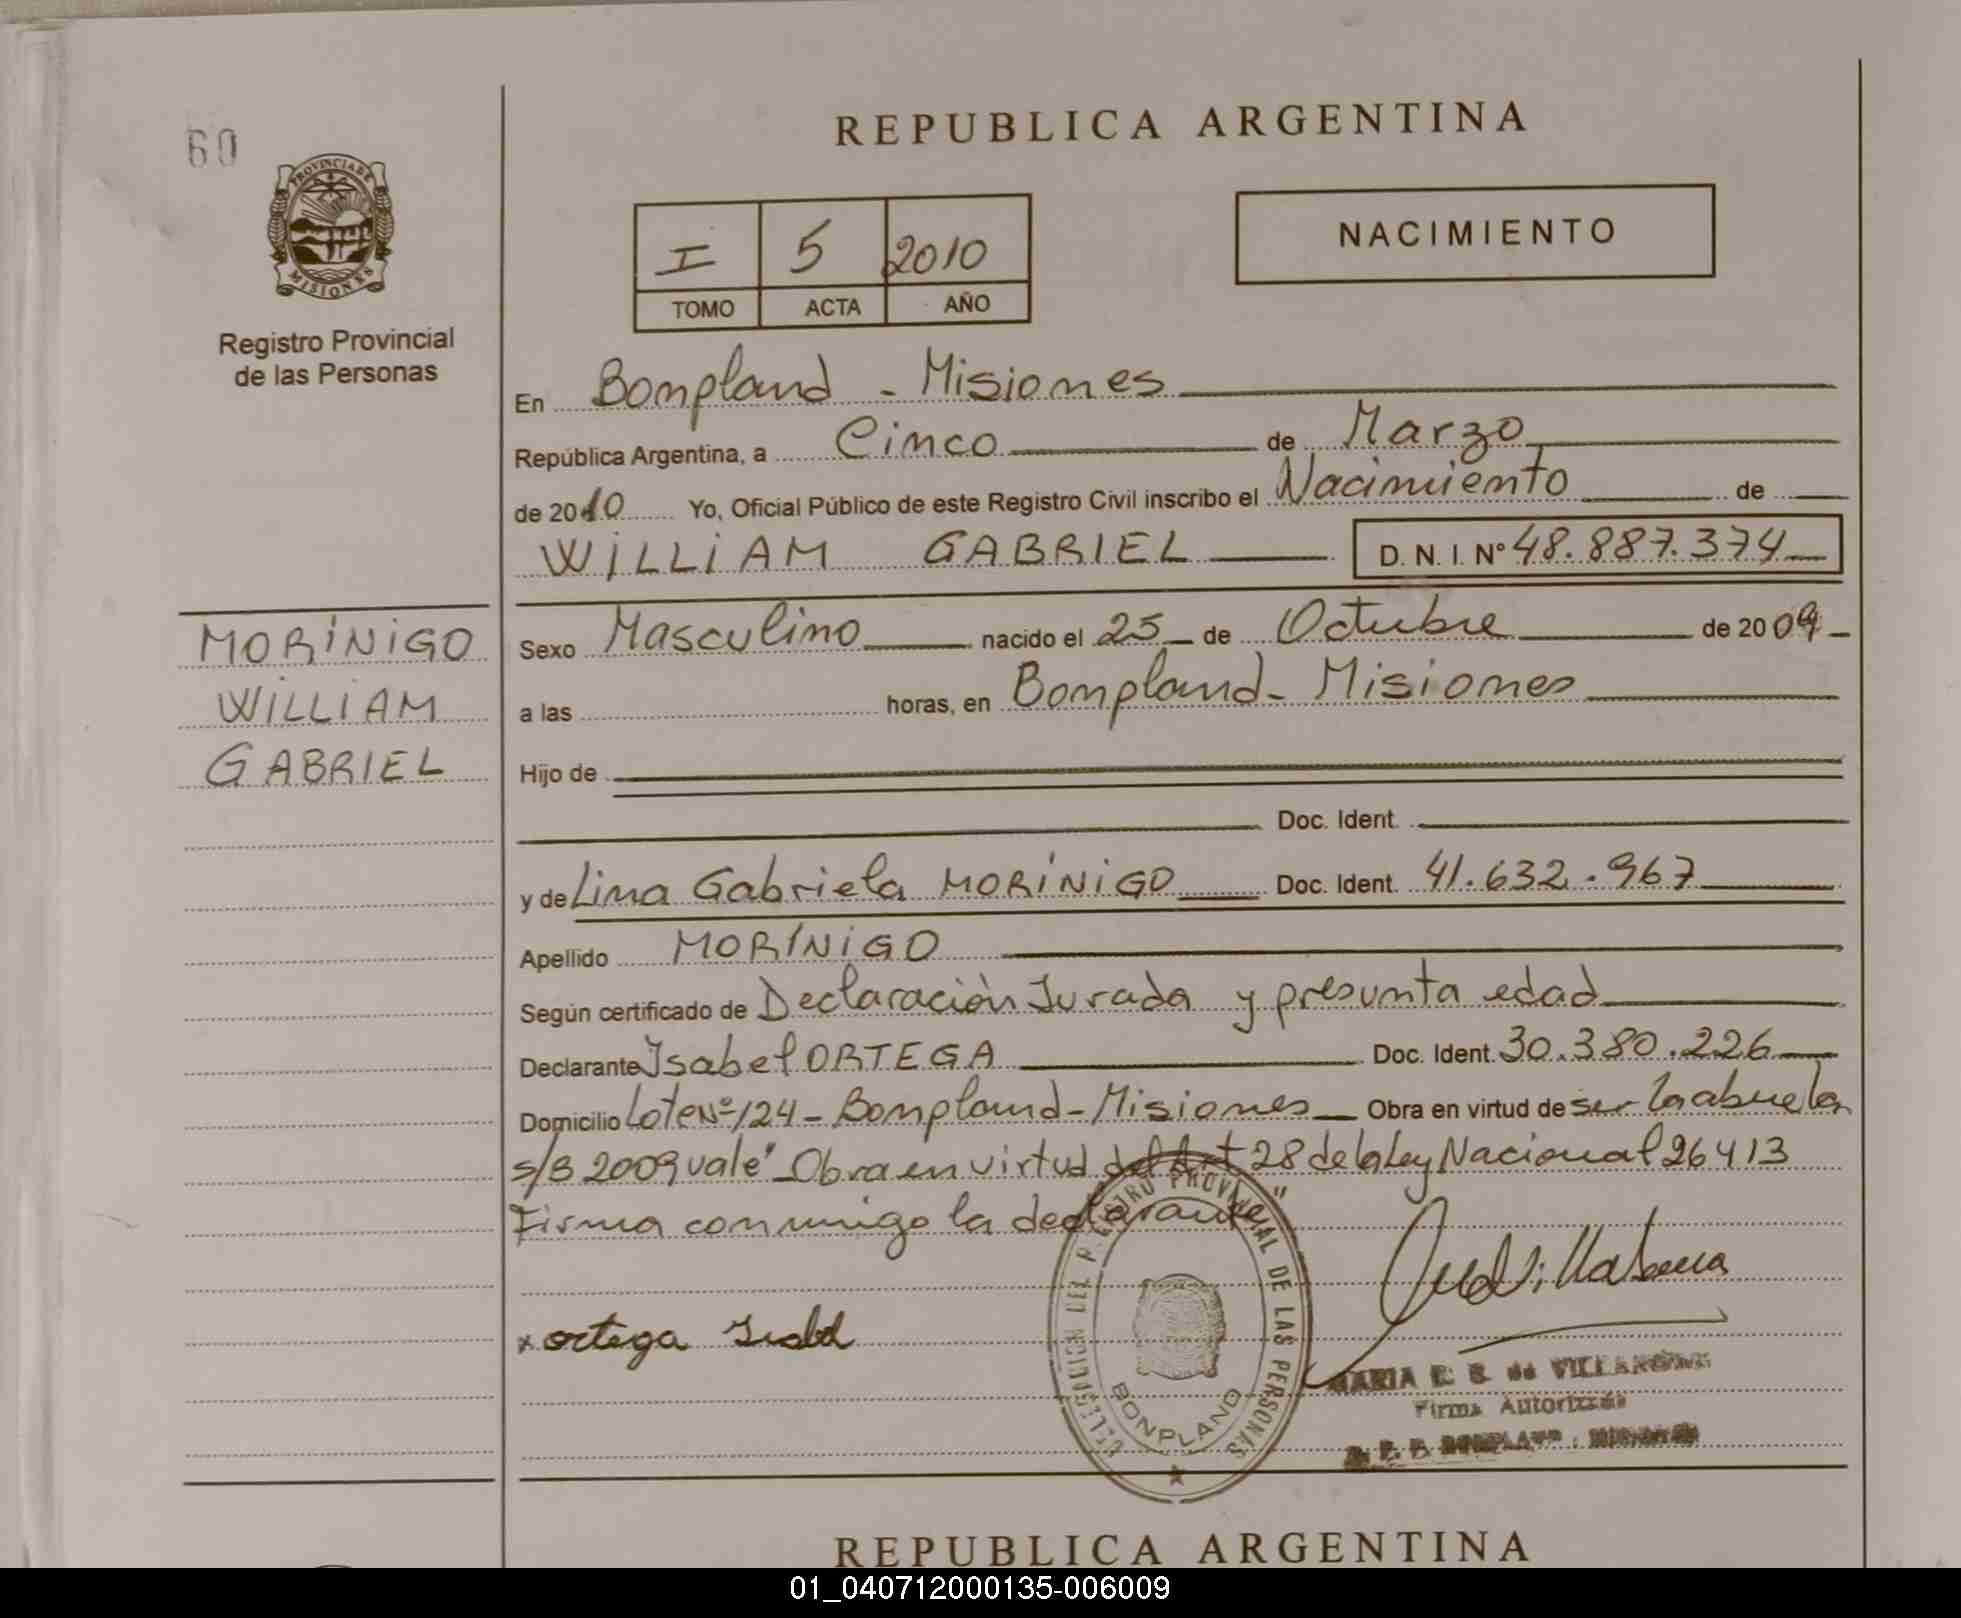 60
REPUBLICA ARGENTINA
PROVINCIA DE
MISIONES
Registro Provincial
de las Personas
I 5 2010
TOMO ACTA AÑO
NACIMIENTO
En Bompland - Misiones
República Argentina, a Cinco de Marzo
de 2010 Yo, Oficial Público de este Registro Civil inscribo el Nacimiento de
WILLIAM GABRIEL D. N. I. Nº 48.887.374
MORÍNIGO
WILLIAM
GABRIEL
Sexo Masculino nacido el 25 de Octubre de 2009
a las horas, en Bompland - Misiones
Hijo de
Doc. Ident.
y de Lina Gabriela MORÍNIGO Doc. Ident. 41.632.967
Apellido MORÍNIGO
Según certificado de Declaración Jurada y presunta edad
Declarante Isabel ORTEGA Doc. Ident. 30.380.226
Domicilio Lote Nº 124 - Bompland - Misiones Obra en virtud de ser la abuela
s/B 2009 vale" Obra en virtud del Art 28 de la Ley Nacional 26413
Firma conmigo la declarante"
x ortega Isabel
DELEGACION DEL REGISTRO PROVINCIAL DE LAS PERSONAS
BONPLAND
MARIA E. B. de
Firma Autorizada
REPUBLICA ARGENTINA
01_040712000135-006009